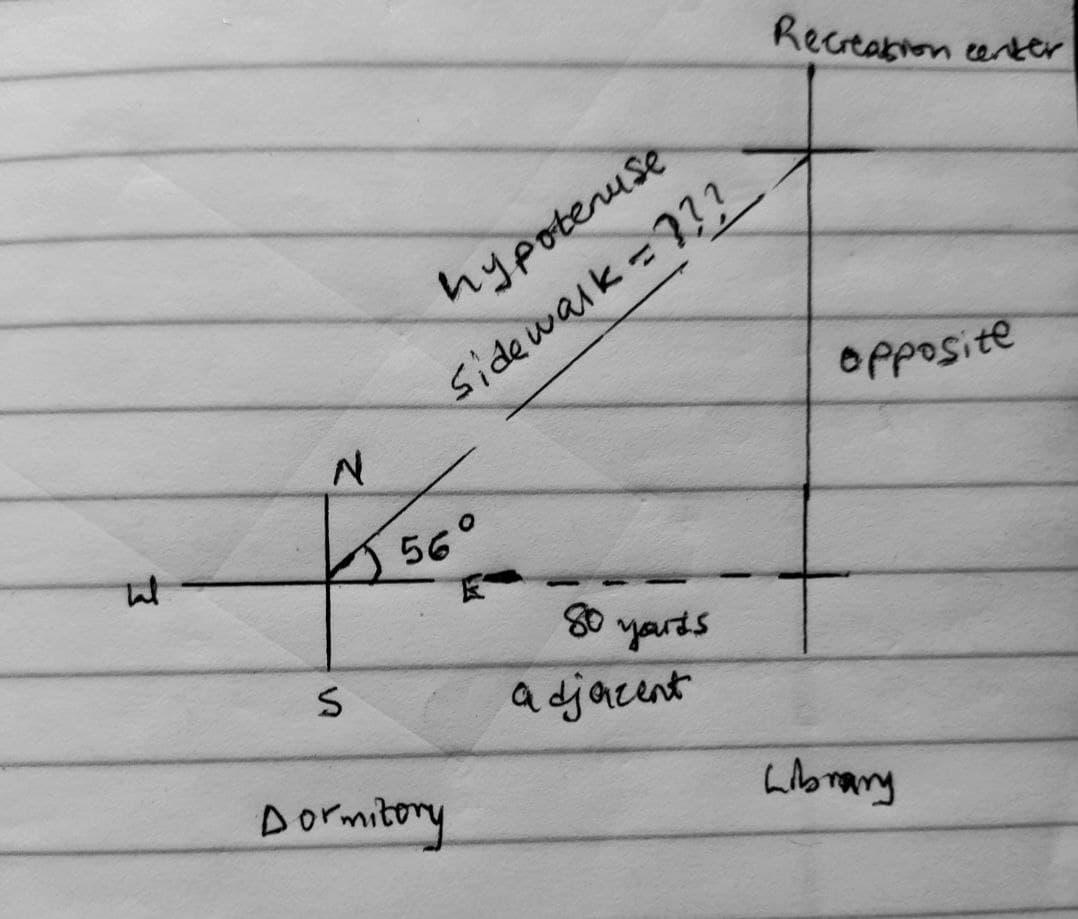 Recreation center
hypotenuse
sidewalk = ???
opposite
N
56°
W
E
80 yards
S
adjacent
Library
Dormitory